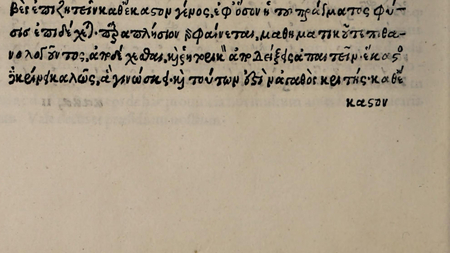 βὲς ἐπιζητεῖν καθ' ἕκαστον γένος, ἐφ' ὅσον ἡ τοῦ πράγματος φύ-
σις ἐπιδέχεται. παραπλήσιον γὰρ φαίνεται, μαθηματικοῦ τε πιθα-
νολογοῦντος, ἀποδέχεσθαι, καὶ ῥητορικὸν ἀποδείξεις ἀπαιτεῖν. ἕκαστος
δὲ κρίνει καλῶς, ἃ γινώσκει. καὶ τούτων ἐστὶν ἀγαθὸς κριτής. καθ' ἕ-
καστον